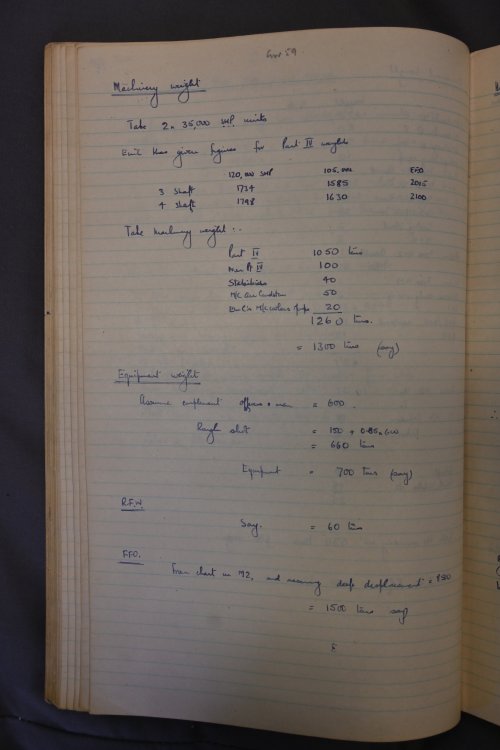 Machinery weight
Take 2 x 35,000 SHP units
E in C has given figures for Part IV weights
120,000 SHP 105,000 EFO
3 shaft 1734 1585 2015
4 shaft 1798 1630 2100
Take machinery weight :-
Part IV 1050 tons
Non Pt IV 100
Stabilisers 40
M/C air Condition 50
20
1260 tons.
= 1300 tons (say)
Equipment weight
Assume complement officers + men = 600.
Rough = 150 + 0.85 x 600
= 660 tons
Equipment = 700 tons (say)
R.F.W.
Say. = 60 tons
FFO.
From chart in M2, and assuming deep displacement =
= 1500 tons say